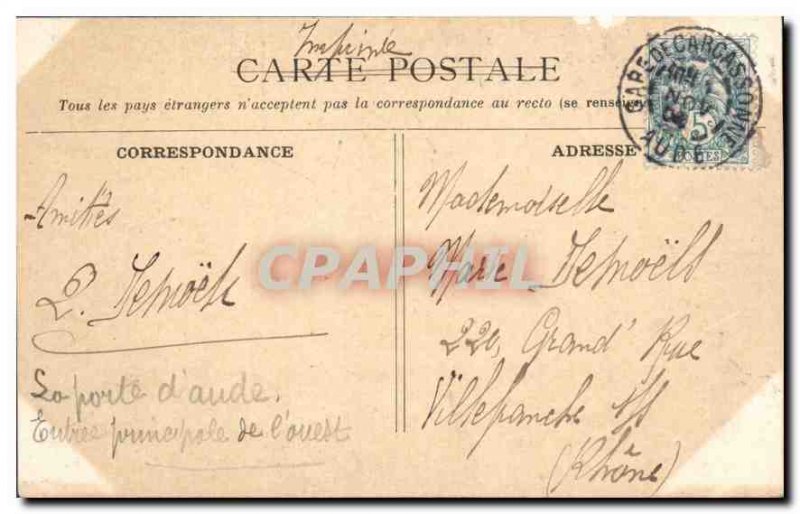 Imprimé
CARTE POSTALE
Tous les pays étrangers n'acceptent pas la correspondance au recto (se rensei
CORRESPONDANCE
ADRESSE
GARE DE CARCASSONNE
NOV
AUDE
5
POSTES
Amitiés
Mademoiselle
220, Grand' Rue
Villefranche s/s
(Rhône)
La porte d'aude.
Entrée principale de l'ouest
CPAPHIL